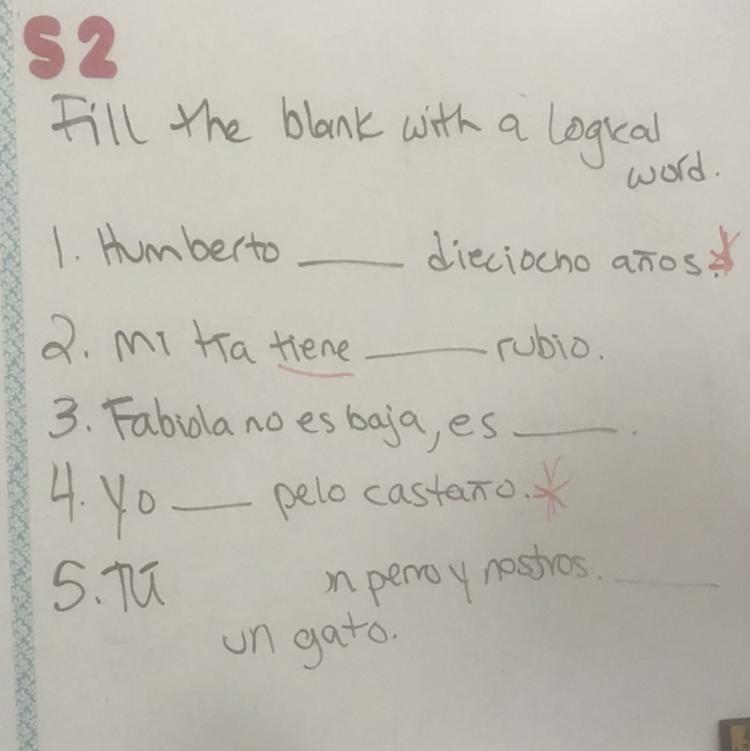 S2
Fill the blank with a logical
word.
1. Humberto ____ dieciocho años.
2. mi tía tiene ____ rubio.
3. Fabiola no es baja, es ____.
4. Yo ____ pelo castaño.
5. Tú n perro y nostros. ____
un gato.